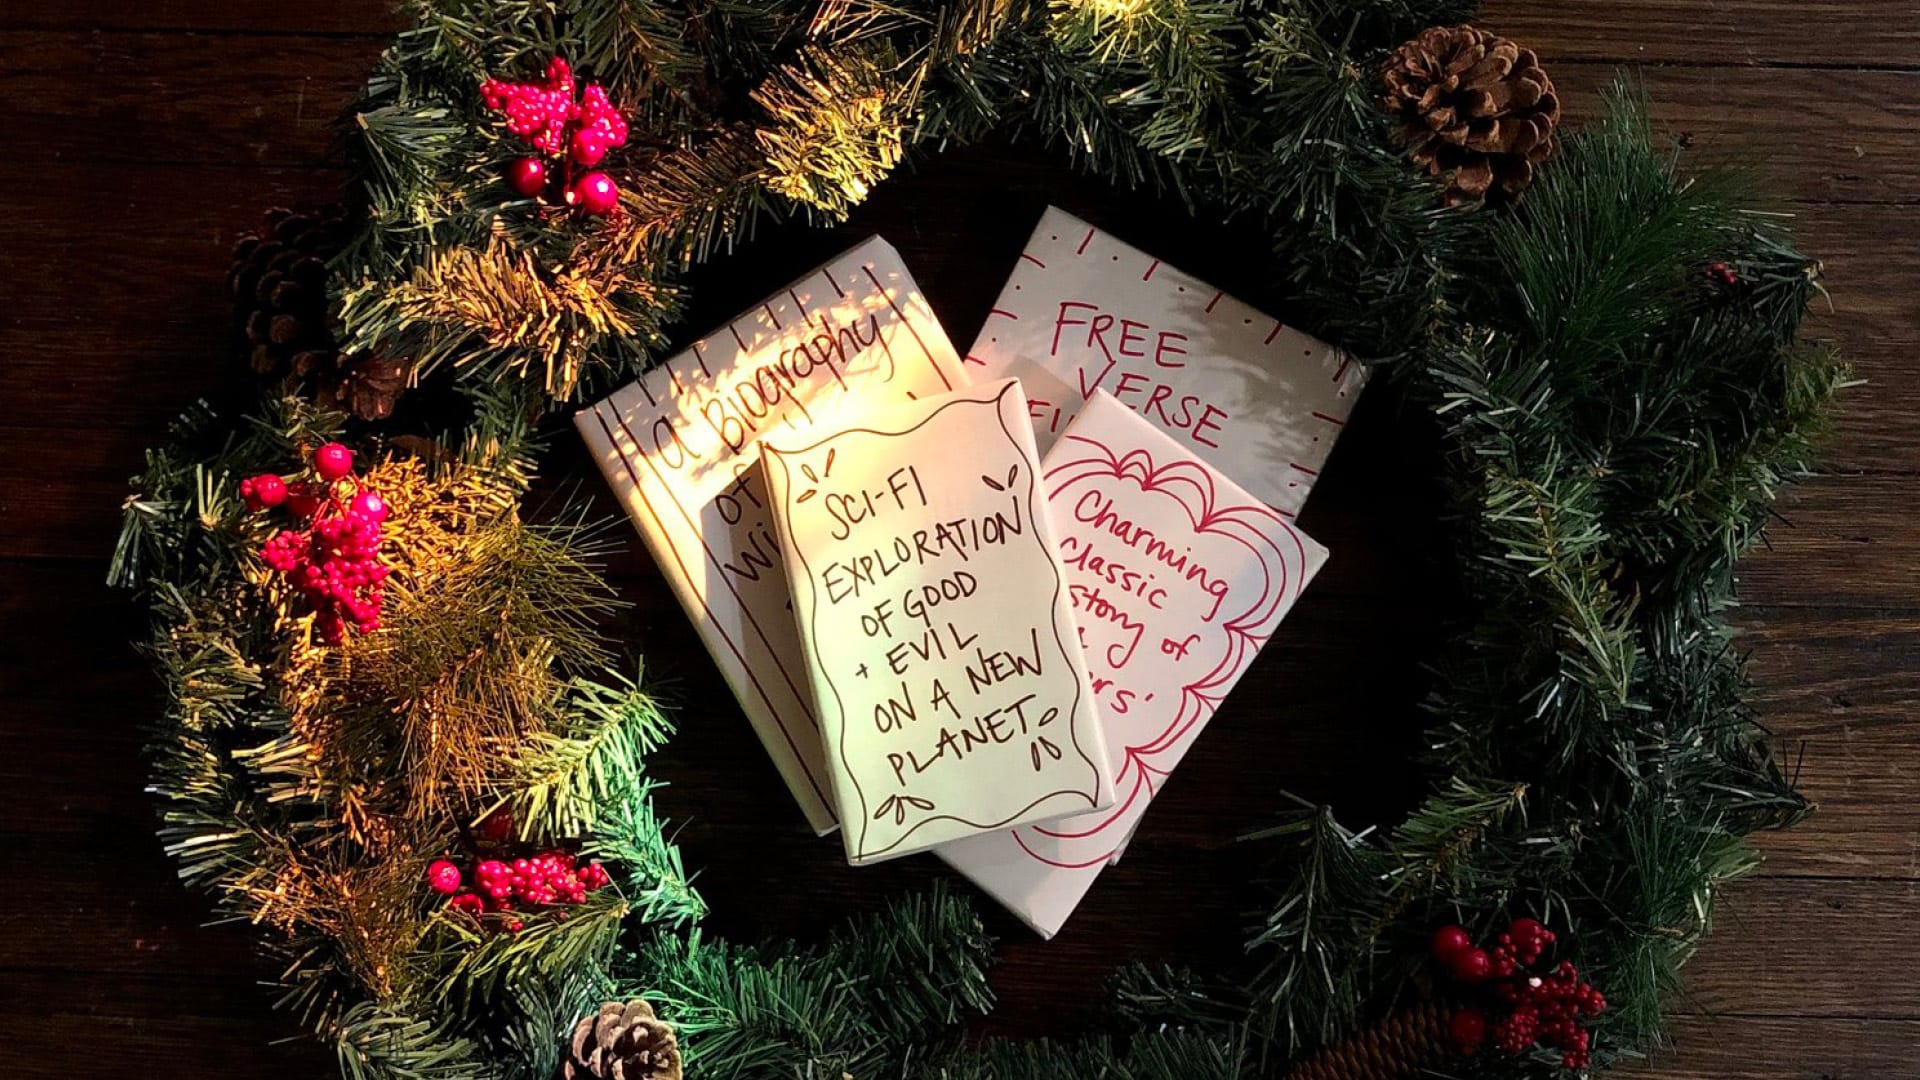 a Biography
of
FREE
VERSE
SCI-FI
EXPLORATION
OF GOOD
+ EVIL
ON A NEW
PLANET
Charming
Classic
story of